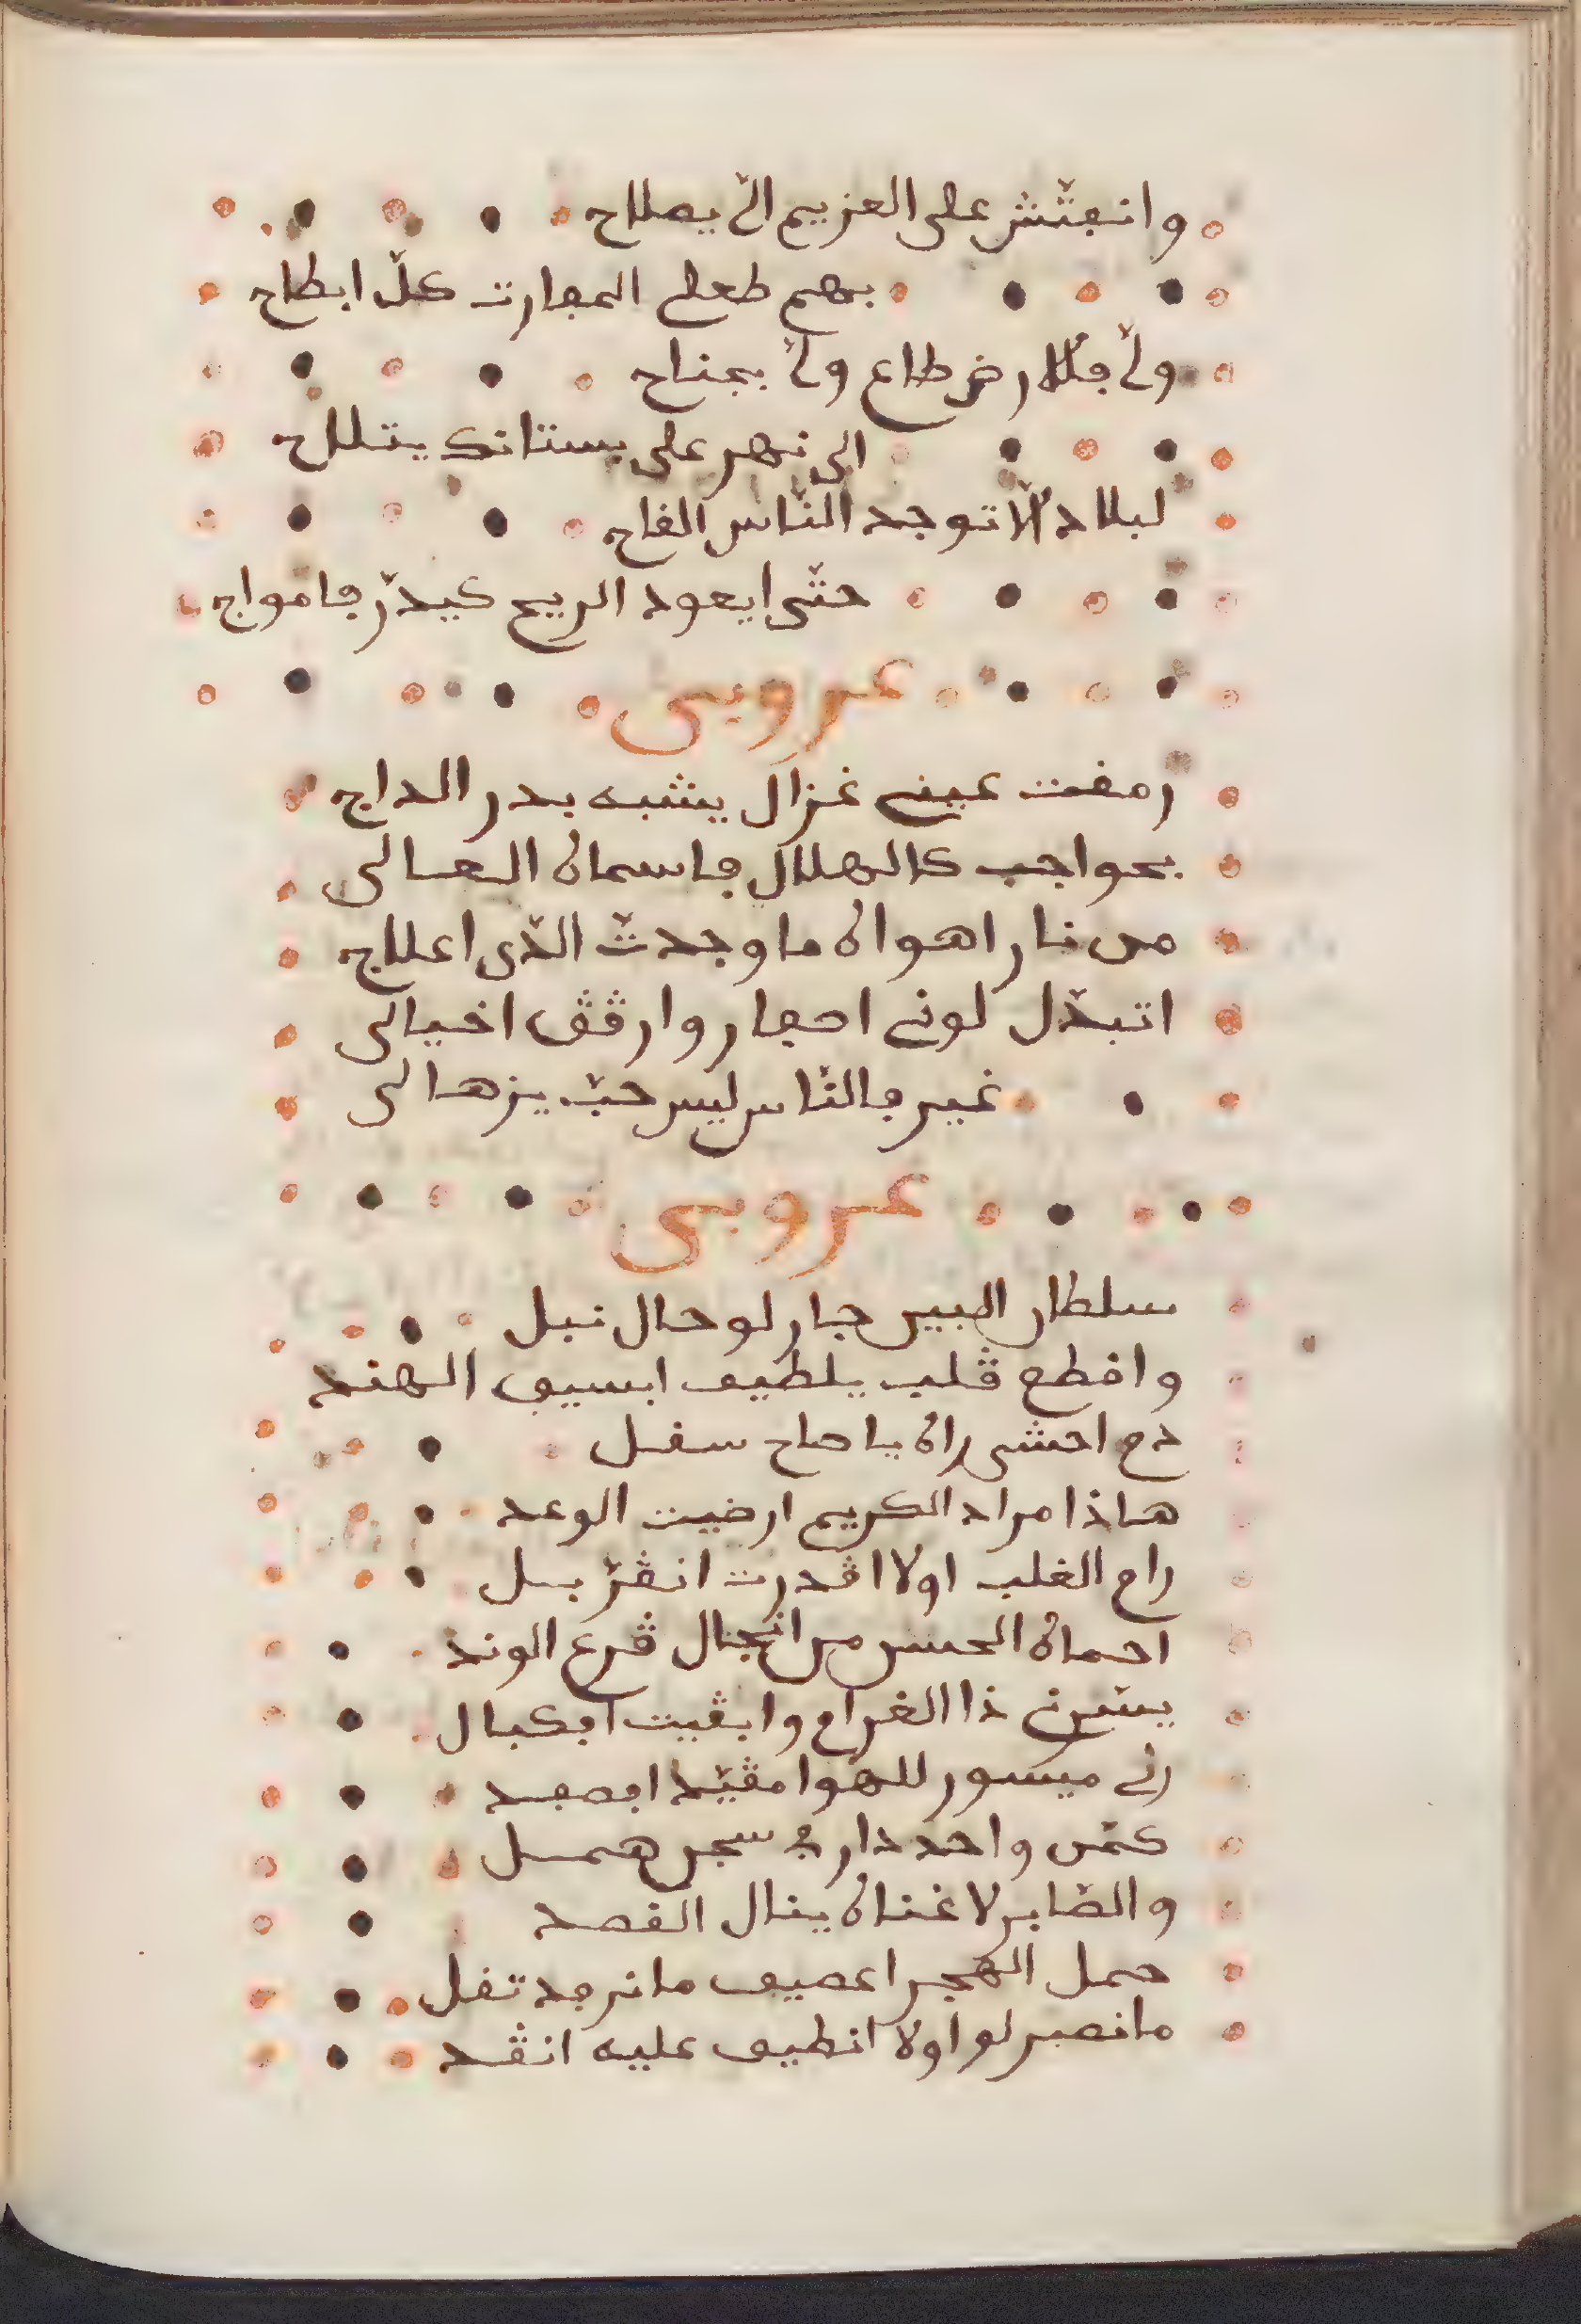 وانفتّش على العزيم الّي يصلاح
بهم طعلى المفارت كلّ ابطاح
ولّ فلارض طاع ولّ بجناح
الى نهر على بستانك يتلاح
لبلاد ألّا توجد النّاس الفاح
حتّى ايعود الريح كيدرّ فامواج
عروبى
رمقت عينى غزال يشبه بدر الداج
بحواجب كالهلال فاسماه العالى
من نار اهواه ما وجدتّ الذّى اعلاج
اتبدّل لونى اصفار وارڨڨ اخيالى
غير فالنّاس ليس حبّ يزهالى
عروبى
سلطان البين جار لو حال نبل
واقطع ڨلب يلطيف ابسيف الهند
دع احشى راه يا صاح سقل
هاذا مراد الكريم ارضيت الوعد
راح القلب اولا اڨدرت انڨزّ بل
احماه الحسن من انجال ڨرع الوند
يسّرن ذا الغرام وابڨيت افكبال
رنى ميسور للهوا مڨيّد ابصفد
كمّن واحد دار فى سجن همل
والصّابر لا غناه ينال القصد
حمل الهجر اعصيف ما نرفد تقل
ما نصبر لو اولا انطيف عليه انڨد